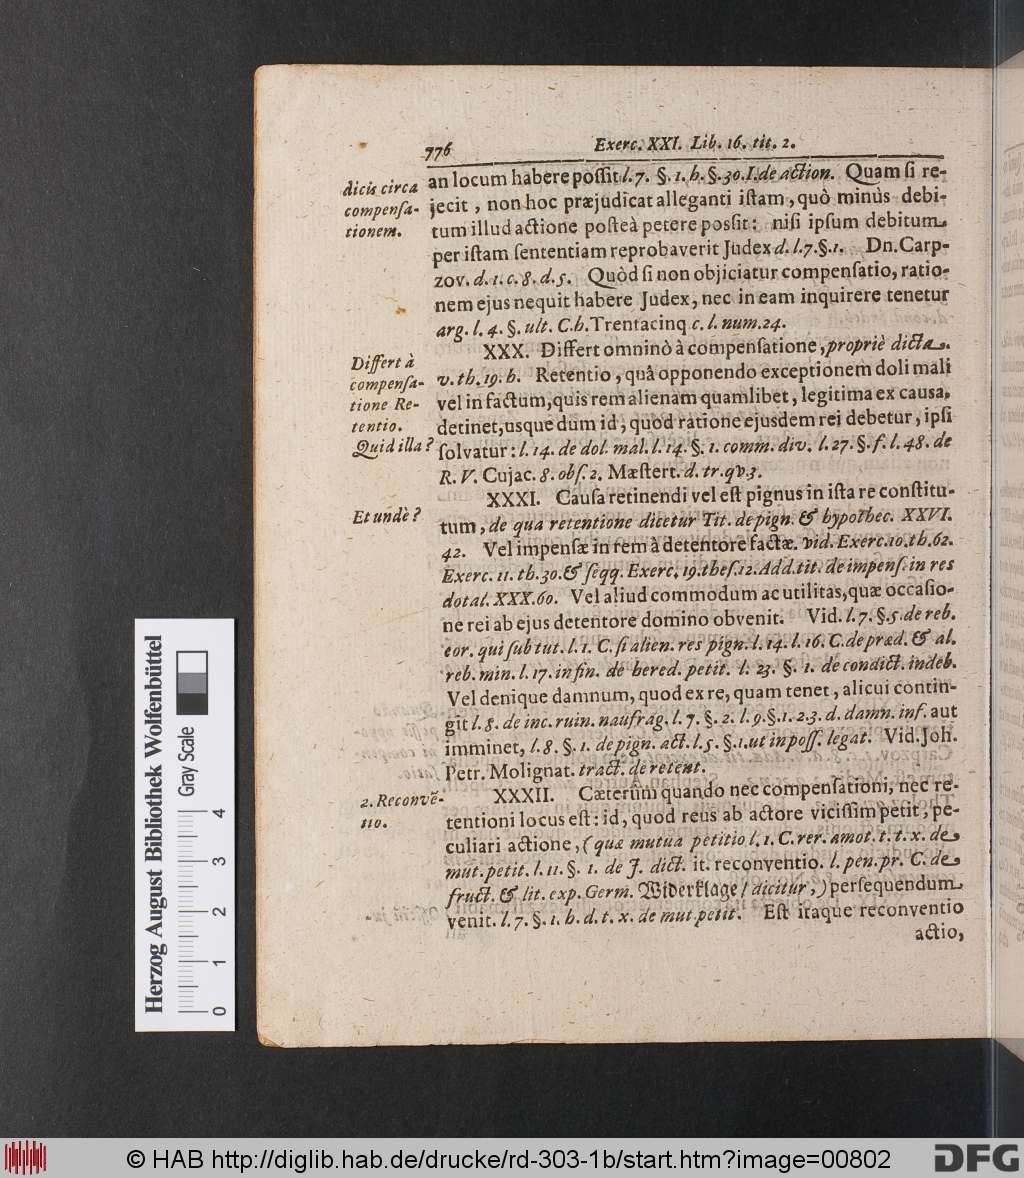 776 Exerc. XXI. Lib. 16. tit. 2.
dicis circa
compensa-
tionem.
an locum habere possit l. 7. §. 1. h. §. 30. I. de action. Quam si re-
jecit, non hoc præjudicat alleganti istam, quò minùs debi-
tum illud actione posteà petere possit: nisi ipsum debitum
per istam sententiam reprobaverit Judex d. l. 7. §. 1. Dn. Carp-
zov. d. 1. c. 8. d. 5. Quòd si non objiciatur compensatio, ratio-
nem ejus nequit habere Judex, nec in eam inquirere tenetur
arg. l. 4. §. ult. C. h. Trentacinq c. l. num. 24.
Differt à
compensa-
tione Re-
tentio.
Quid illa?
XXX. Differt omninò à compensatione, propriè dicta.
v. th. 19. h. Retentio, quâ opponendo exceptionem doli mali
vel in factum, quis rem alienam quamlibet, legitima ex causa,
detinet, usque dum id, quod ratione ejusdem rei debetur, ipsi
solvatur: l. 14. de dol. mal. l. 14. §. 1. comm. div. l. 27. §. f. l. 48. de
R. V. Cujac. 8. obs. 2. Mæstert. d. tr. qv. 3.
Et undè?
XXXI. Causa retinendi vel est pignus in ista re constitu-
tum, de qua retentione dicetur Tit. de pign. & hypothec. XXVI.
42. Vel impensæ in rem à detentore factæ. vid. Exerc. 10. th. 62.
Exerc. 11. th. 30. & seqq. Exerc. 19. thes. 12. Add. tit. de impens. in res
dotal. XXX. 60. Vel aliud commodum ac utilitas, quæ occasio-
ne rei ab ejus detentore domino obvenit. Vid. l. 7. §. 5. de reb.
eor. qui sub tut. l. 1. C. si alien. res pign. l. 14. l. 16. C. de præd. & al.
reb. min. l. 17. in fin. de hered. petit. l. 23. §. 1. de condict. indeb.
Vel denique damnum, quod ex re, quam tenet, alicui contin-
git l. 8. de inc. ruin. naufrag. l. 7. §. 2. l. 9. §. 1. 2. 3. d. damn. inf. aut
imminet, l. 8. §. 1. de pign. act. l. 5. §. 1. ut in poss. legat. Vid. Joh.
Petr. Molignat. tract. de retent.
2. Reconvē-
tio.
XXXII. Cæterûm quando nec compensationi, nec re-
tentioni locus est: id, quod reus ab actore vicissim petit, pe-
culiari actione, (quæ mutua petitio l. 1. C. rer. amot. t. t. x. de
mut. petit. l. 11. §. 1. de J. dict. it. reconventio. l. pen. pr. C. de
fruct. & lit. exp. Germ. Widerklage / dicitur,) persequendum
venit. l. 7. §. 1. h. d. t. x. de mut petit. Est itaque reconventio
actio,
Herzog August Bibliothek Wolfenbüttel
Gray Scale
0 1 2 3 4
© HAB http://diglib.hab.de/drucke/rd-303-1b/start.htm?image=00802
DFG